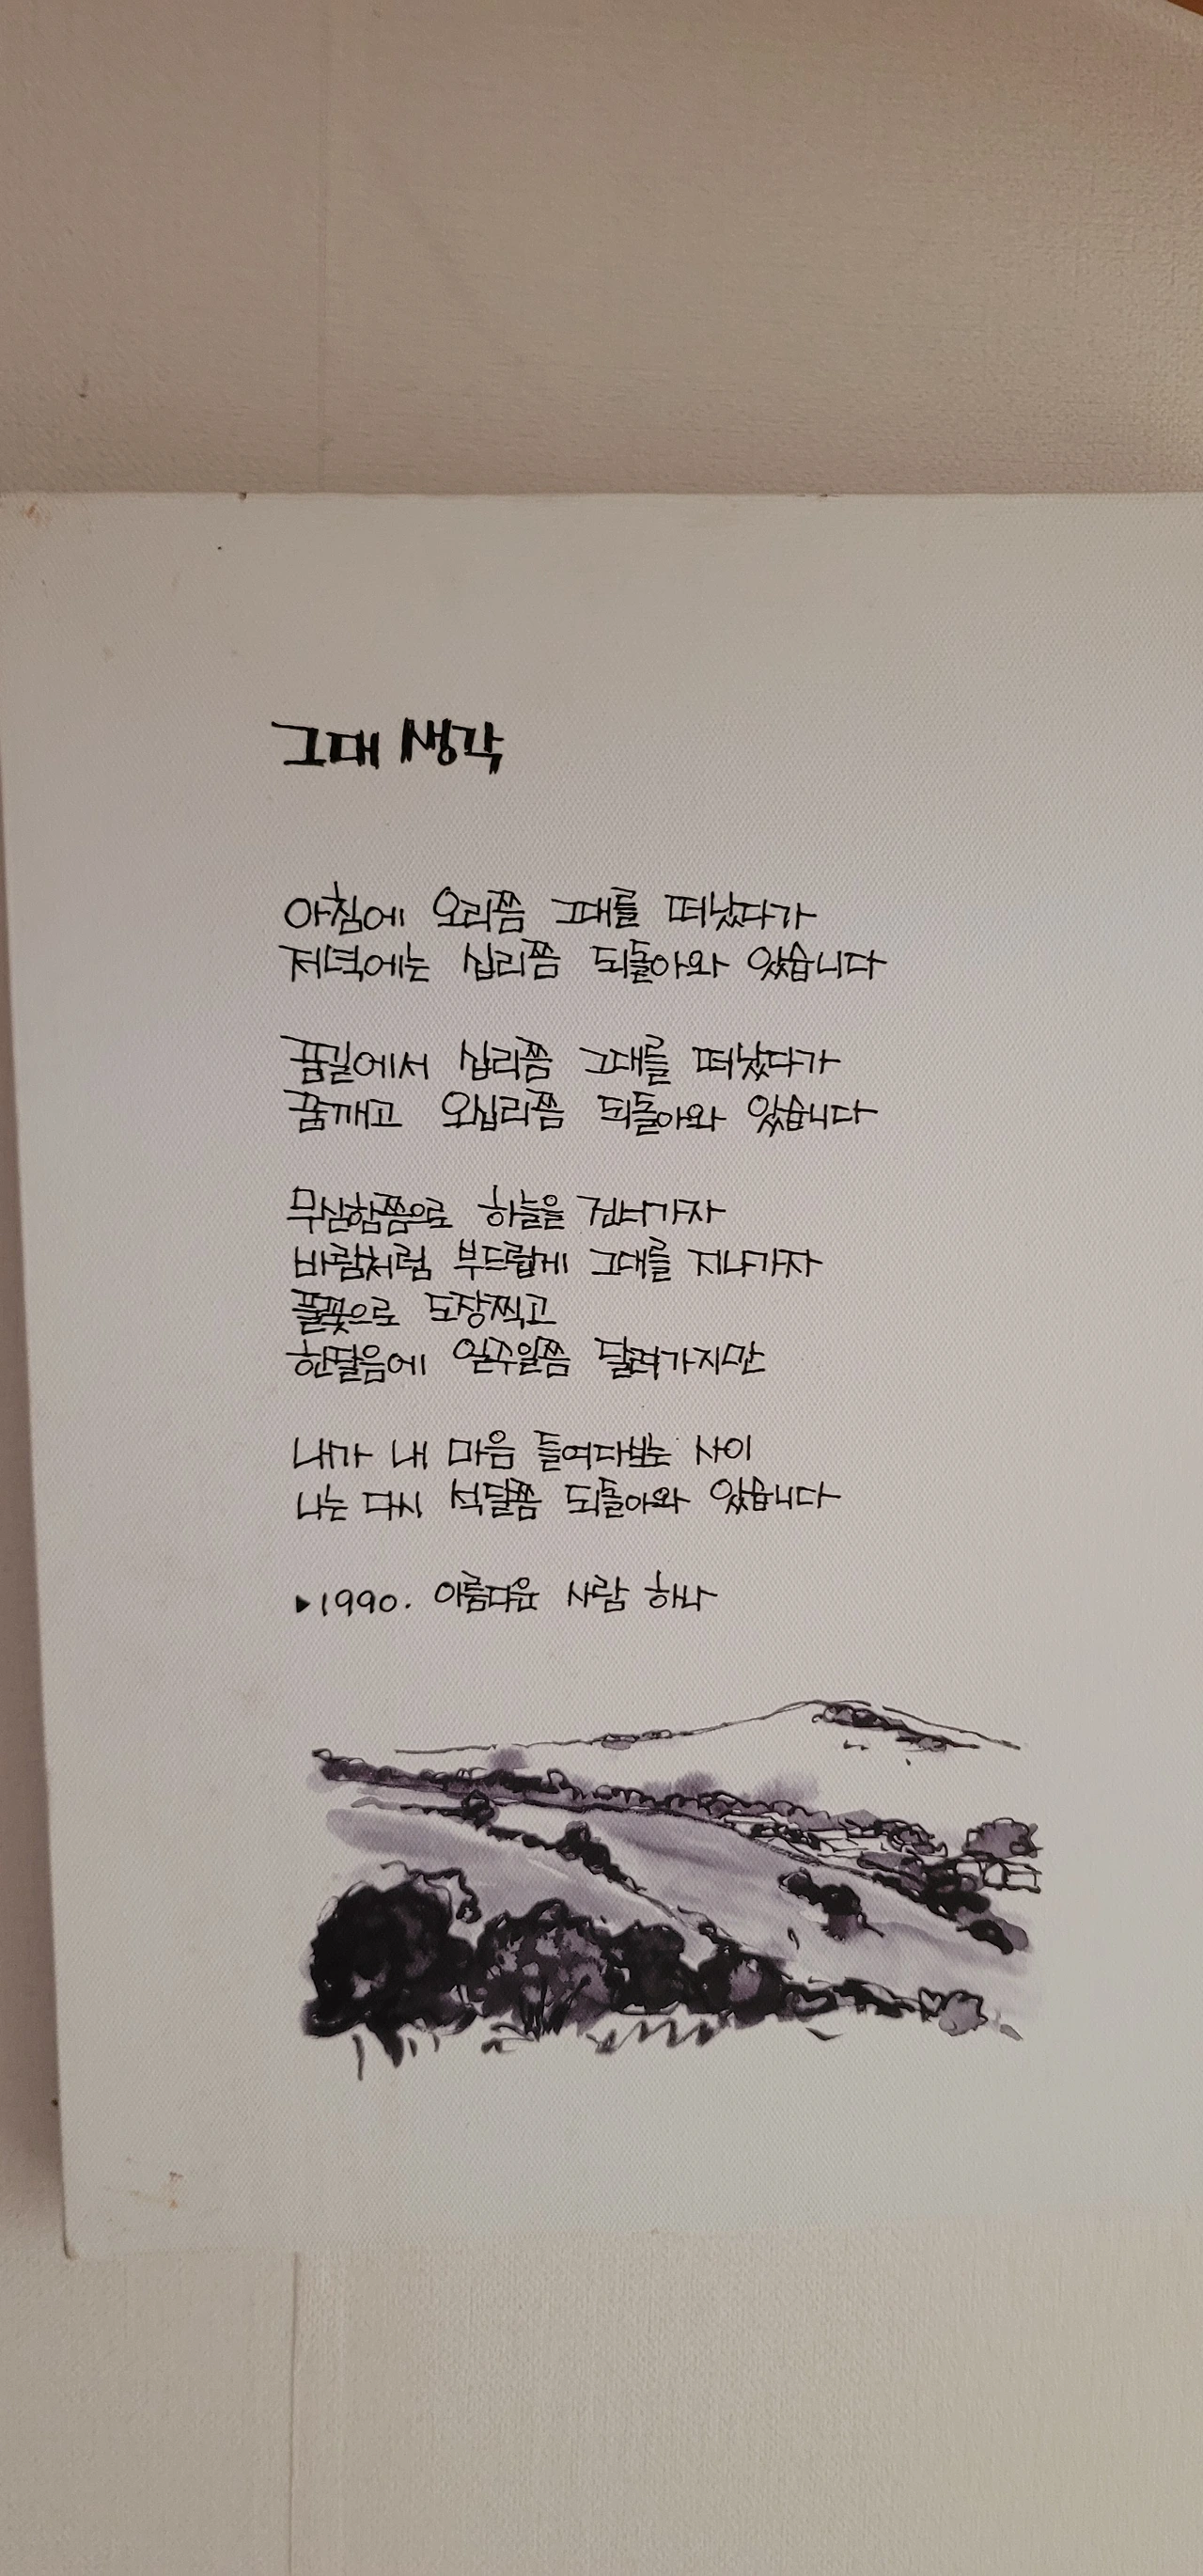 그대 생각
아침에 오리쯤 그대를 떠났다가
저녁에는 십리쯤 되돌아와 있습니다
꿈길에서 십리쯤 그대를 떠났다가
꿈깨고 오십리쯤 되돌아와 있습니다
무심함쯤으로 하늘을 건너가자
바람처럼 부드럽게 그대를 지나가자
풀꽃으로 도장찍고
한달음에 일주일쯤 달려가지만
내가 내 마음 들여다보는 사이
나는 다시 석달쯤 되돌아와 있습니다
▶1990. 아름다운 사람 하나